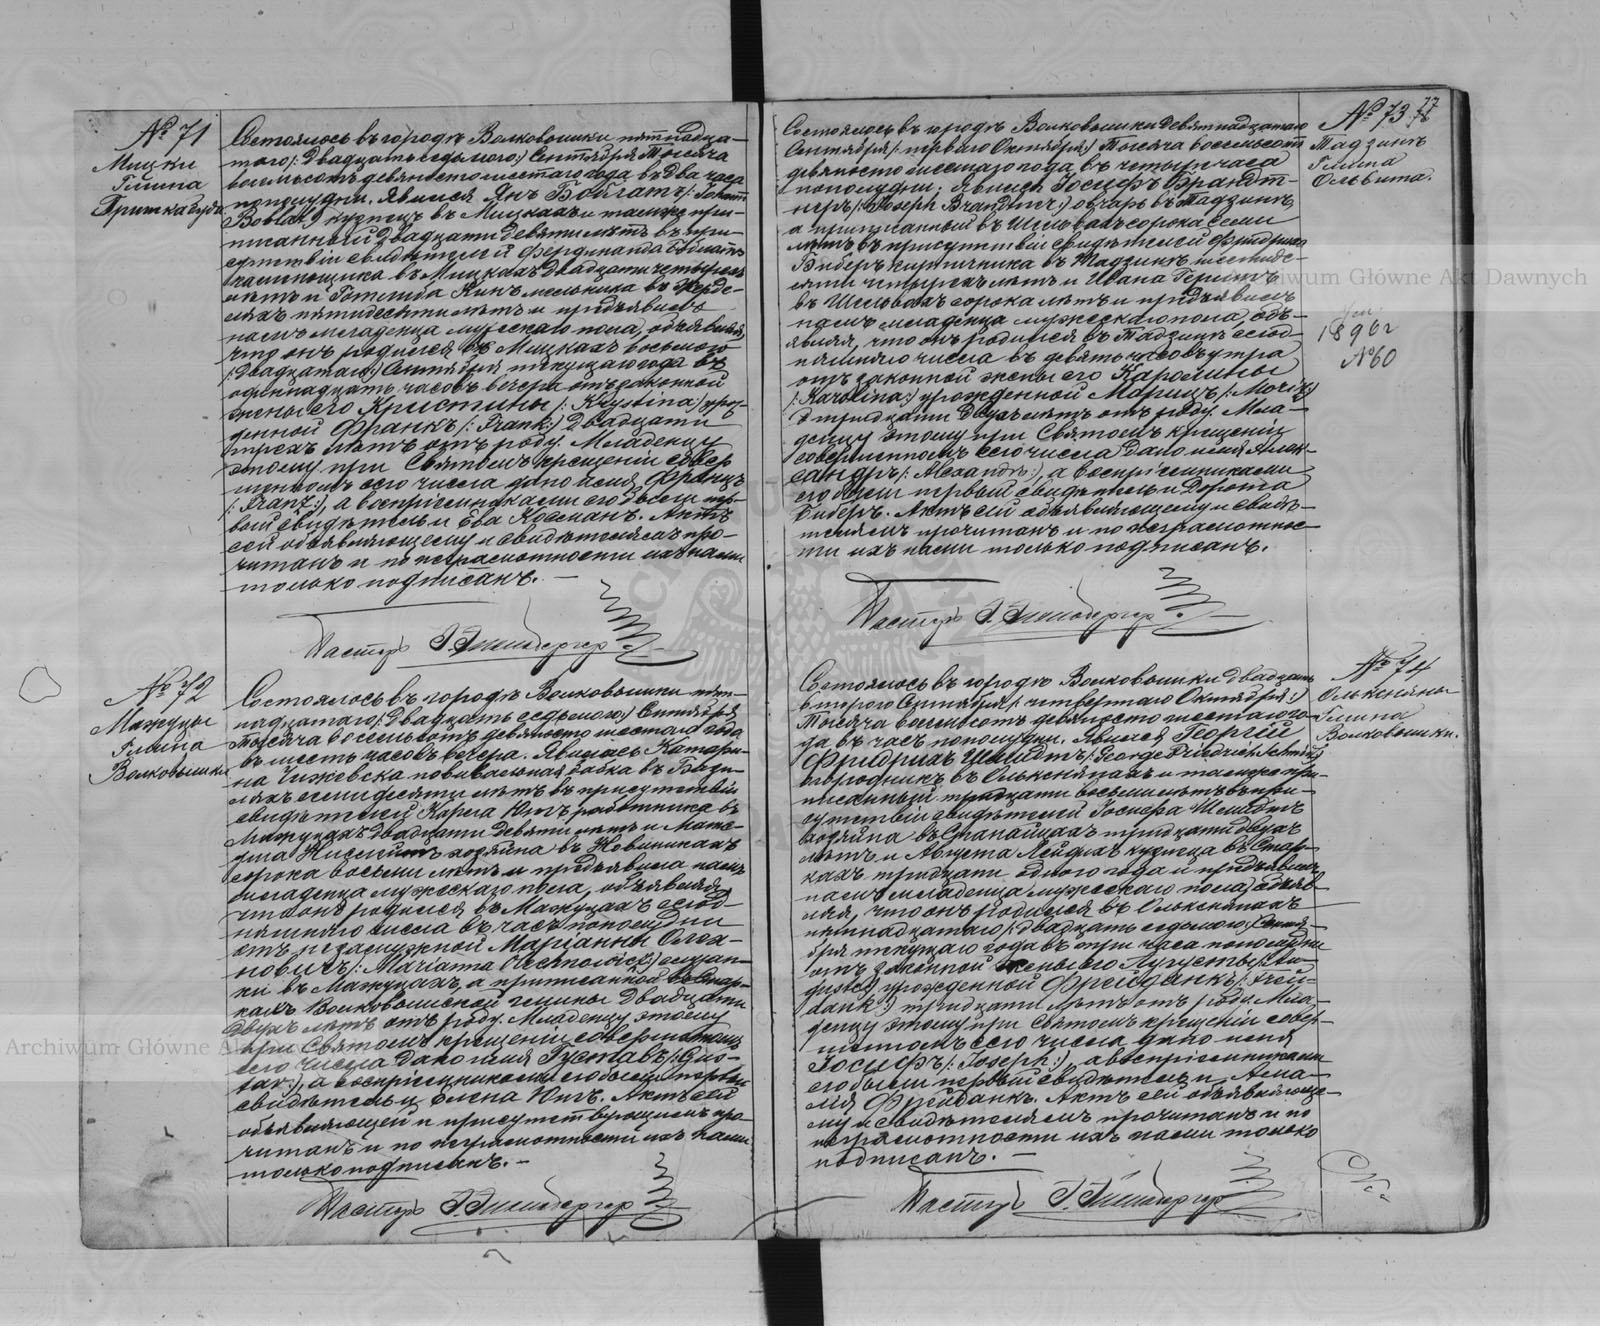 № 71
Мицки
Гмина
Состоялось въ городѣ Волковышки пятнадца-
таго /: двадцать седьмого:/ Сентября тысяча
восемьсотъ девяносто шестаго года въ два часа
пополудни. Явился Янъ Бойлатъ /: Johann
кузнецъ въ Мицкахъ и тамже при-
писанный двадцати девяти лѣтъ въ при-
сутствіи свидѣтелей Фердинанда
каменщика въ Мицкахъ двадцати четырехъ
лѣтъ и Готлиба Кинъ мельника въ
пятидесяти лѣтъ и предъявилъ
намъ младенца мужескаго пола, объявляя,
что онъ родился въ Мицкахъ восьмого
/: двадцатаго:/ Сентября текущаго года въ
одиннадцать часовъ вечера отъ законной
жены его Кристины /: Krystina:/ урож-
денной Франкъ /: Frank:/ двадцати
трехъ лѣтъ отъ роду. Младенцу
этому при Святомъ крещеніи совер-
шенномъ сего числа дано имя Францъ
/: Franz:/, а воспріемниками его были пер-
вый свидѣтель и Ева Косманъ. Актъ
сей объявляющему и свидѣтелямъ про-
читанъ и по неграмотности ихъ нами
только подписанъ. —
Пастырь
№ 72
Мажуцы
Гмина
Волковышки
Состоялось въ городѣ Волковышки пят-
надцатаго /: двадцать седьмого:/ Сентября
тысяча восемьсотъ девяносто шестаго года
въ шесть часовъ вечера. Явилась Катари-
на Чижевска повивальная бабка въ
семидесяти лѣтъ въ присутствіи
свидѣтелей Карла Ютъ работника въ
Мажуцахъ двадцати девяти лѣтъ и
хозяина въ Новиникахъ
сорока восьми лѣтъ и предъявила намъ
младенца мужескаго пола, объявляя,
что онъ родился въ Мажуцахъ сегод-
няшняго числа въ часъ пополудни
отъ незамужной Маріанны Олех-
новичъ /: Marianna Olechnowicz:/ служан-
ки въ Мажуцахъ, а приписанной
Волковышской гмины двадцати
двухъ лѣтъ отъ роду. Младенцу этому
при Святомъ крещеніи совершенномъ
сего числа дано имя Густавъ /: Gus-
tav:/, а воспріемниками его были первый
свидѣтель и Елена Ютъ. Актъ сей
объявляющей и присутствующимъ про-
читанъ и по неграмотности ихъ нами
только подписанъ. —
Пастырь
№ 73
Тадзинъ
Гмина
Ольвита.
1896 г
№ 60
Состоялось въ городѣ Волковышки девятнадцатаго
Сентября /: перваго Октября:/ тысяча восемьсотъ
девяносто шестаго года въ четыре часа
пополудни. Явился Іосифъ Брандт-
неръ /: Joseph Brandtner:/ овчарь въ Тадзинѣ
а приписанный въ Шельвахъ сорока семи
лѣтъ въ присутствіи свидѣтелей Фридриха
Биберъ кирпичника въ Тадзинѣ шестиде-
сяти четырехъ лѣтъ и Ивана
въ Шельвахъ сорока лѣтъ и предъявилъ
намъ младенца мужескаго пола, объ-
являя, что онъ родился въ Тадзинѣ сегод-
няшняго числа въ девять часовъ утра
отъ законной жены его Каролины
/: Karolina:/ урожденной Морицъ /: Moritz:/
тридцати двухъ лѣтъ отъ роду. Мла-
денцу этому при Святомъ крещеніи
совершенномъ сего числа дано имя Алек-
сандръ /: Alexandr:/, а воспріемниками
его были первый свидѣтель и Дорота
Биберъ. Актъ сей объявляющему и свидѣ-
телямъ прочитанъ и по неграмотнос-
ти ихъ нами только подписанъ.
Пастырь
№ 74
Олькснян
Гмина
Волковышки.
Состоялось въ городѣ Волковышки двадцать
второго Сентября /: четвертаго Октября:/
тысяча восемьсотъ девяносто шестаго го-
да въ часъ пополудни. Явился Георгій
Фридрихъ Шмидтъ /: George Friedrich Schmidt:/
огородникъ въ Олькснянахъ и тамже при-
писанный тридцати восьми лѣтъ въ при-
сутствіи свидѣтелей Іосифа Шмидтъ
хозяина въ тридцати двухъ
лѣтъ и Августа кузнеца въ
тридцати одного года и предъявилъ
намъ младенца мужескаго пола, объяв-
ляя, что онъ родился въ Олькснянахъ
пятнадцатаго /: двадцать седьмого:/ Сентя-
бря текущаго года въ три часа пополудни
отъ законной жены его Августы /: Au-
guste:/ урожденной Фрейданкъ /: Frei-
dank:/ тридцати лѣтъ отъ роду. Мла-
денцу этому при Святомъ крещеніи совер-
шенномъ сего числа дано имя
Іосифъ /: Joseph:/, а воспріемниками
его были первый свидѣтель и Ама-
лія Фрейданкъ. Актъ сей объявляюще-
му и свидѣтелямъ прочитанъ и по
неграмотности ихъ нами только
подписанъ. —
Пастырь
Archiwum Główne Akt Dawnych